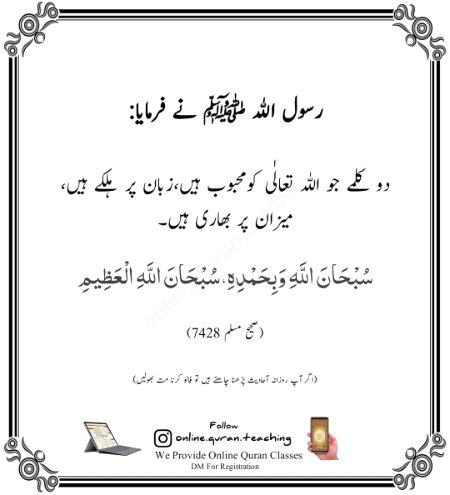 رسول اللہ ﷺ نے فرمایا:
دو کلمے جو اللہ تعالٰی کو محبوب ہیں، زبان پر ہلکے ہیں،
میزان پر بھاری ہیں۔
سُبْحَانَ اللَّهِ وَبِحَمْدِهِ، سُبْحَانَ اللَّهِ الْعَظِيمِ
(صحیح مسلم 7428)
(اگر آپ روزانہ آحادیث پڑھنا چاہتے ہیں تو فالو کرنا مت بھولیں)
Follow
online.quran.teaching
We Provide Online Quran Classes
DM For Registration